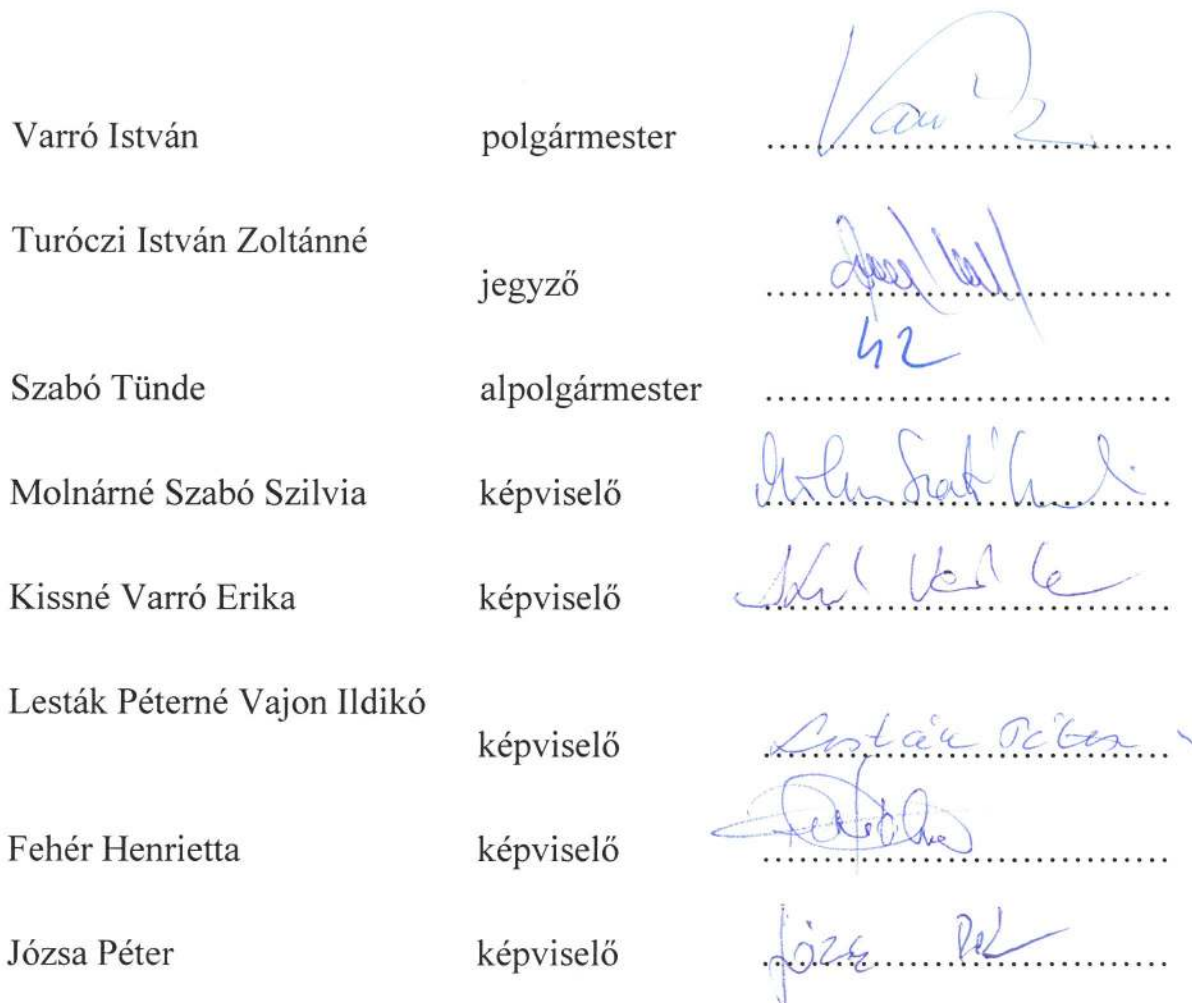 Varró István polgármester ........................................
Turóczi István Zoltánné
jegyző ........................................
42
Szabó Tünde alpolgármester ........................................
Molnárné Szabó Szilvia képviselő ........................................
Kissné Varró Erika képviselő ........................................
Lesták Péterné Vajon Ildikó
képviselő ........................................
Fehér Henrietta képviselő ........................................
Józsa Péter képviselő ........................................